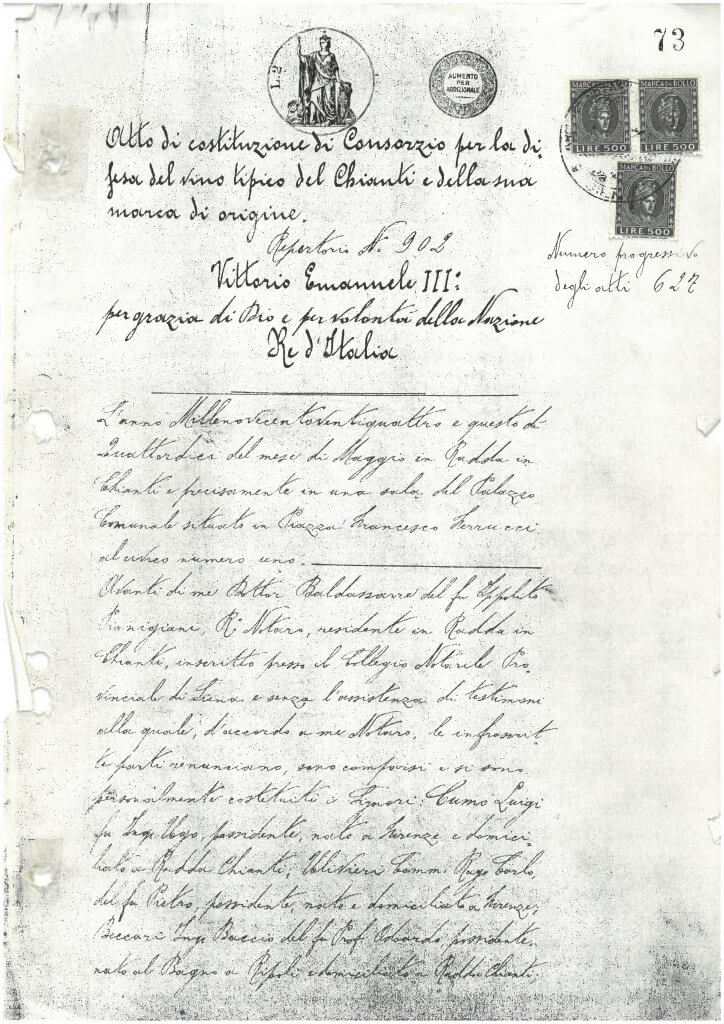 73
L. 2
AUMENTO
PER
ADDIZIONALE
MARCA DA BOLLO
LIRE 500
MARCA DA BOLLO
LIRE 500
MARCA DA BOLLO
LIRE 500
Atto di costituzione di Consorzio per la di-
fesa del vino tipico del Chianti e della sua
marca di origine.
Repertorio N. 902
Numero progressivo
degli atti 627
Vittorio Emanuele III:
per grazia di Dio e per volontà della Nazione
Re d'Italia
L'anno Millenovecentoventiquattro e questo dì
Quattordici del mese di Maggio in Radda in
Chianti e precisamente in una sala del Palazzo
Comunale situato in Piazza Francesco Ferrucci
al civico numero uno.
Avanti di me Dottor Baldassarre del fu Ippolito
Pianigiani, R. Notaro, residente in Radda in
Chianti, inscritto presso il Collegio Notarile Pro-
vinciale di Siena e senza l'assistenza di testimoni
alla quale, d'accordo a me Notaro, le infrascrit-
te parti renunziano, sono comparsi e si sono
personalmente costituiti i Signori: Cumo Luigi
fu Ing. Ugo, possidente, nato a Firenze e domici-
liato a Radda Chianti; Ulivieri Comm. Rag. Carlo,
del fu Pietro, possidente, nato e domiciliato a Firenze;
Beccari Ing. Baccio del fu Prof. Odoardo, possidente,
nato al Bagno a Ripoli e domiciliato a Radda Chianti;